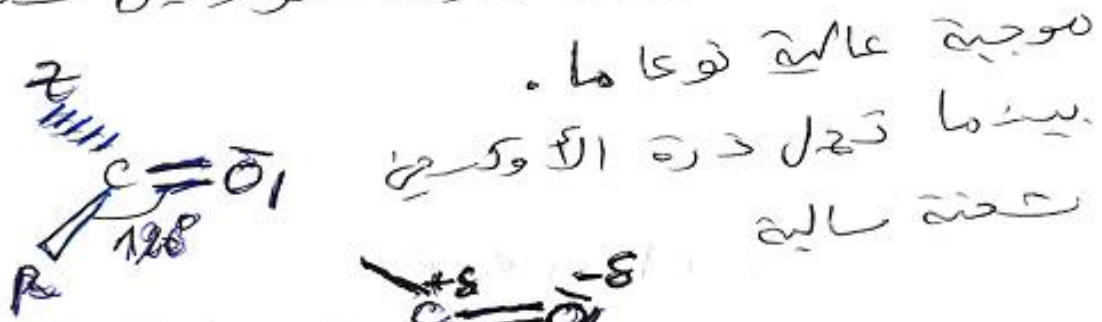 موجبة عالية نوعا ما .
بينما تحمل ذرة الأوكسجين
شحنة سالبة
Z
C = O
R
+δ -δ
C = O